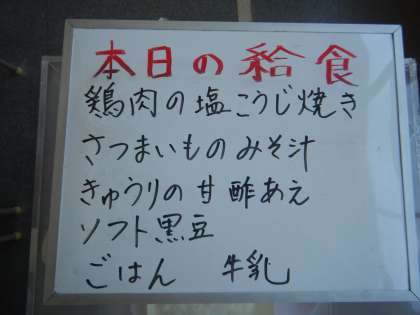 本日の給食
鶏肉の塩こうじ焼き
さつまいものみそ汁
きゅうりの甘酢あえ
ソフト黒豆
ごはん　牛乳